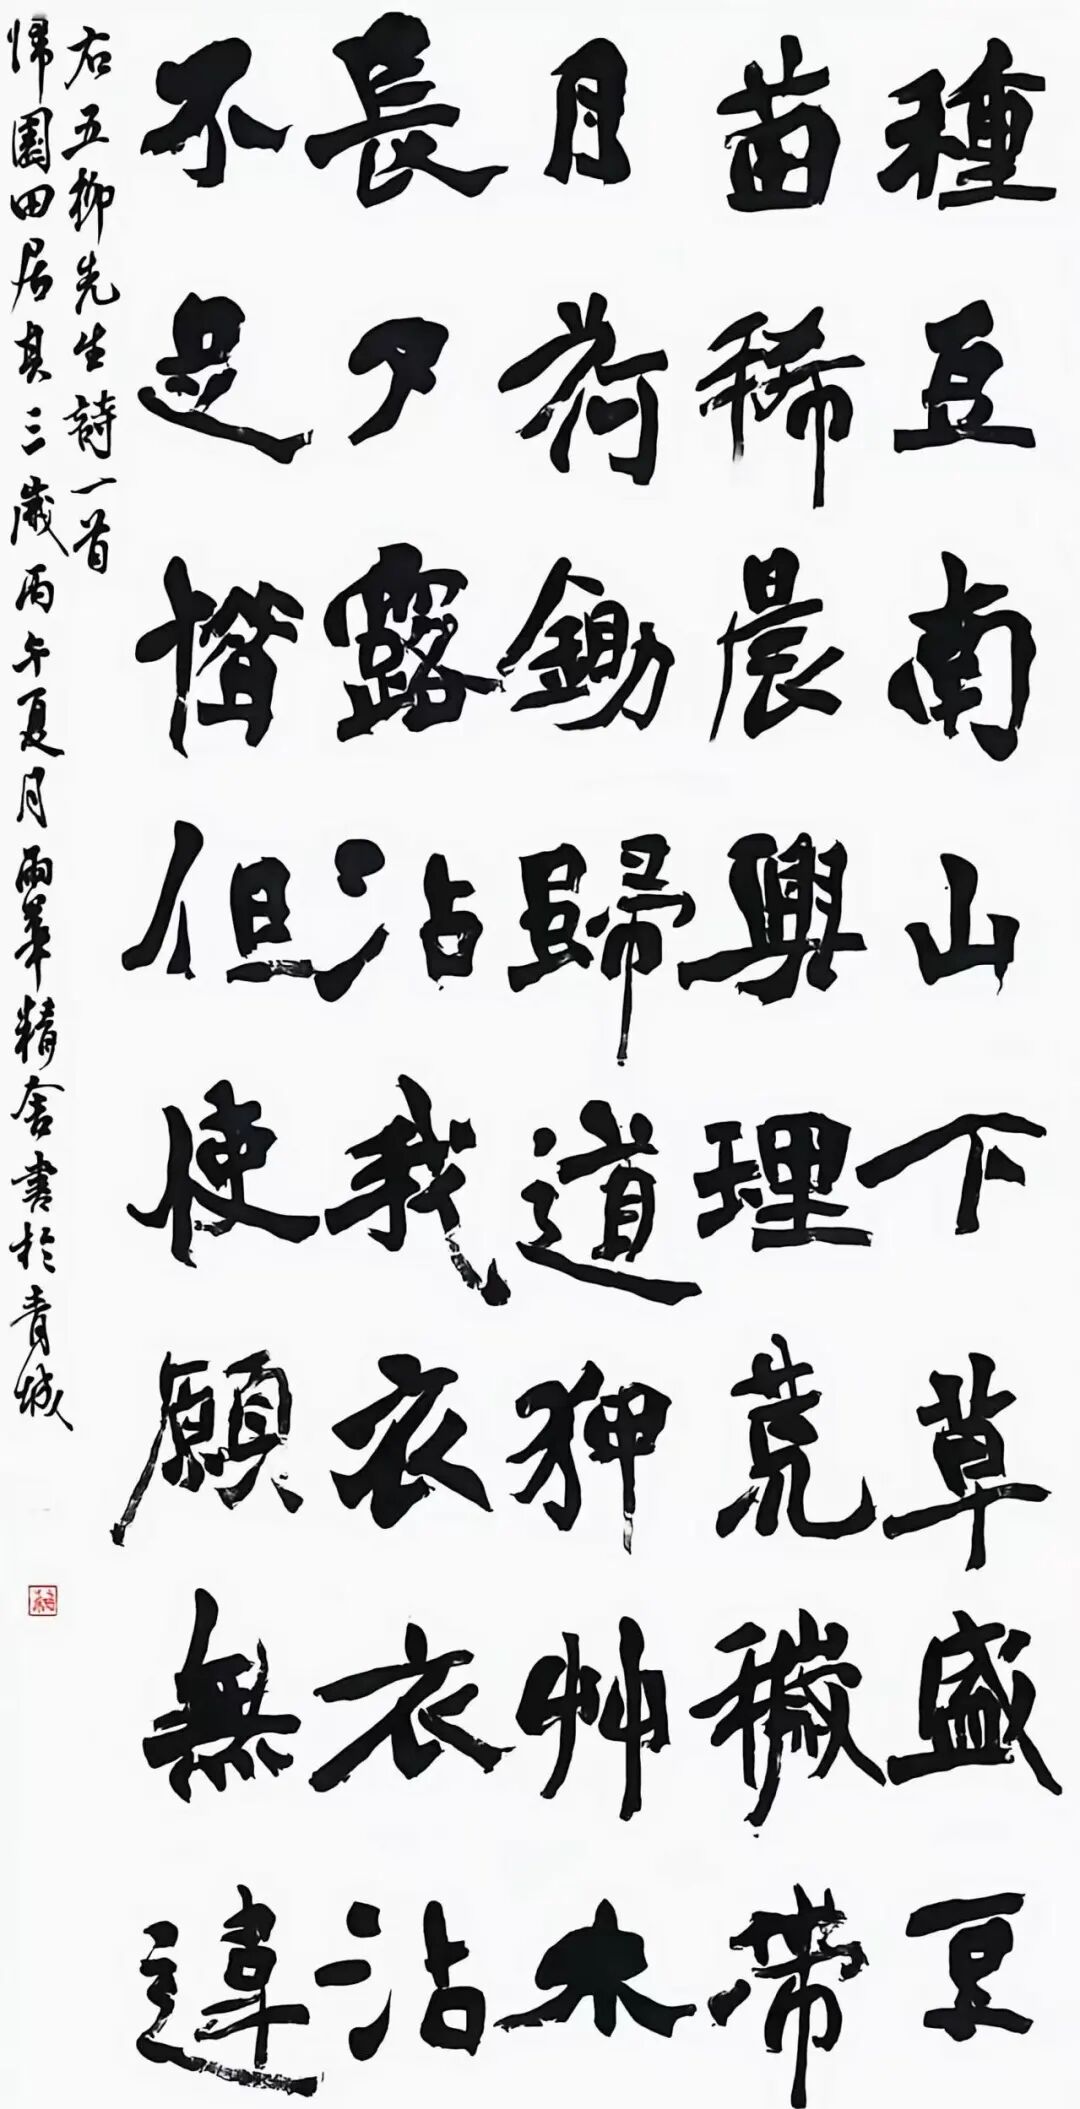 種豆南山下草盛豆
苗稀晨興理荒穢帶
月荷鋤歸道狎艸木
長夕露沾我衣衣沾
不足惜但使願無違
右五柳先生詩一首
歸園田居其三歲丙午夏月雨華精舍書於青城